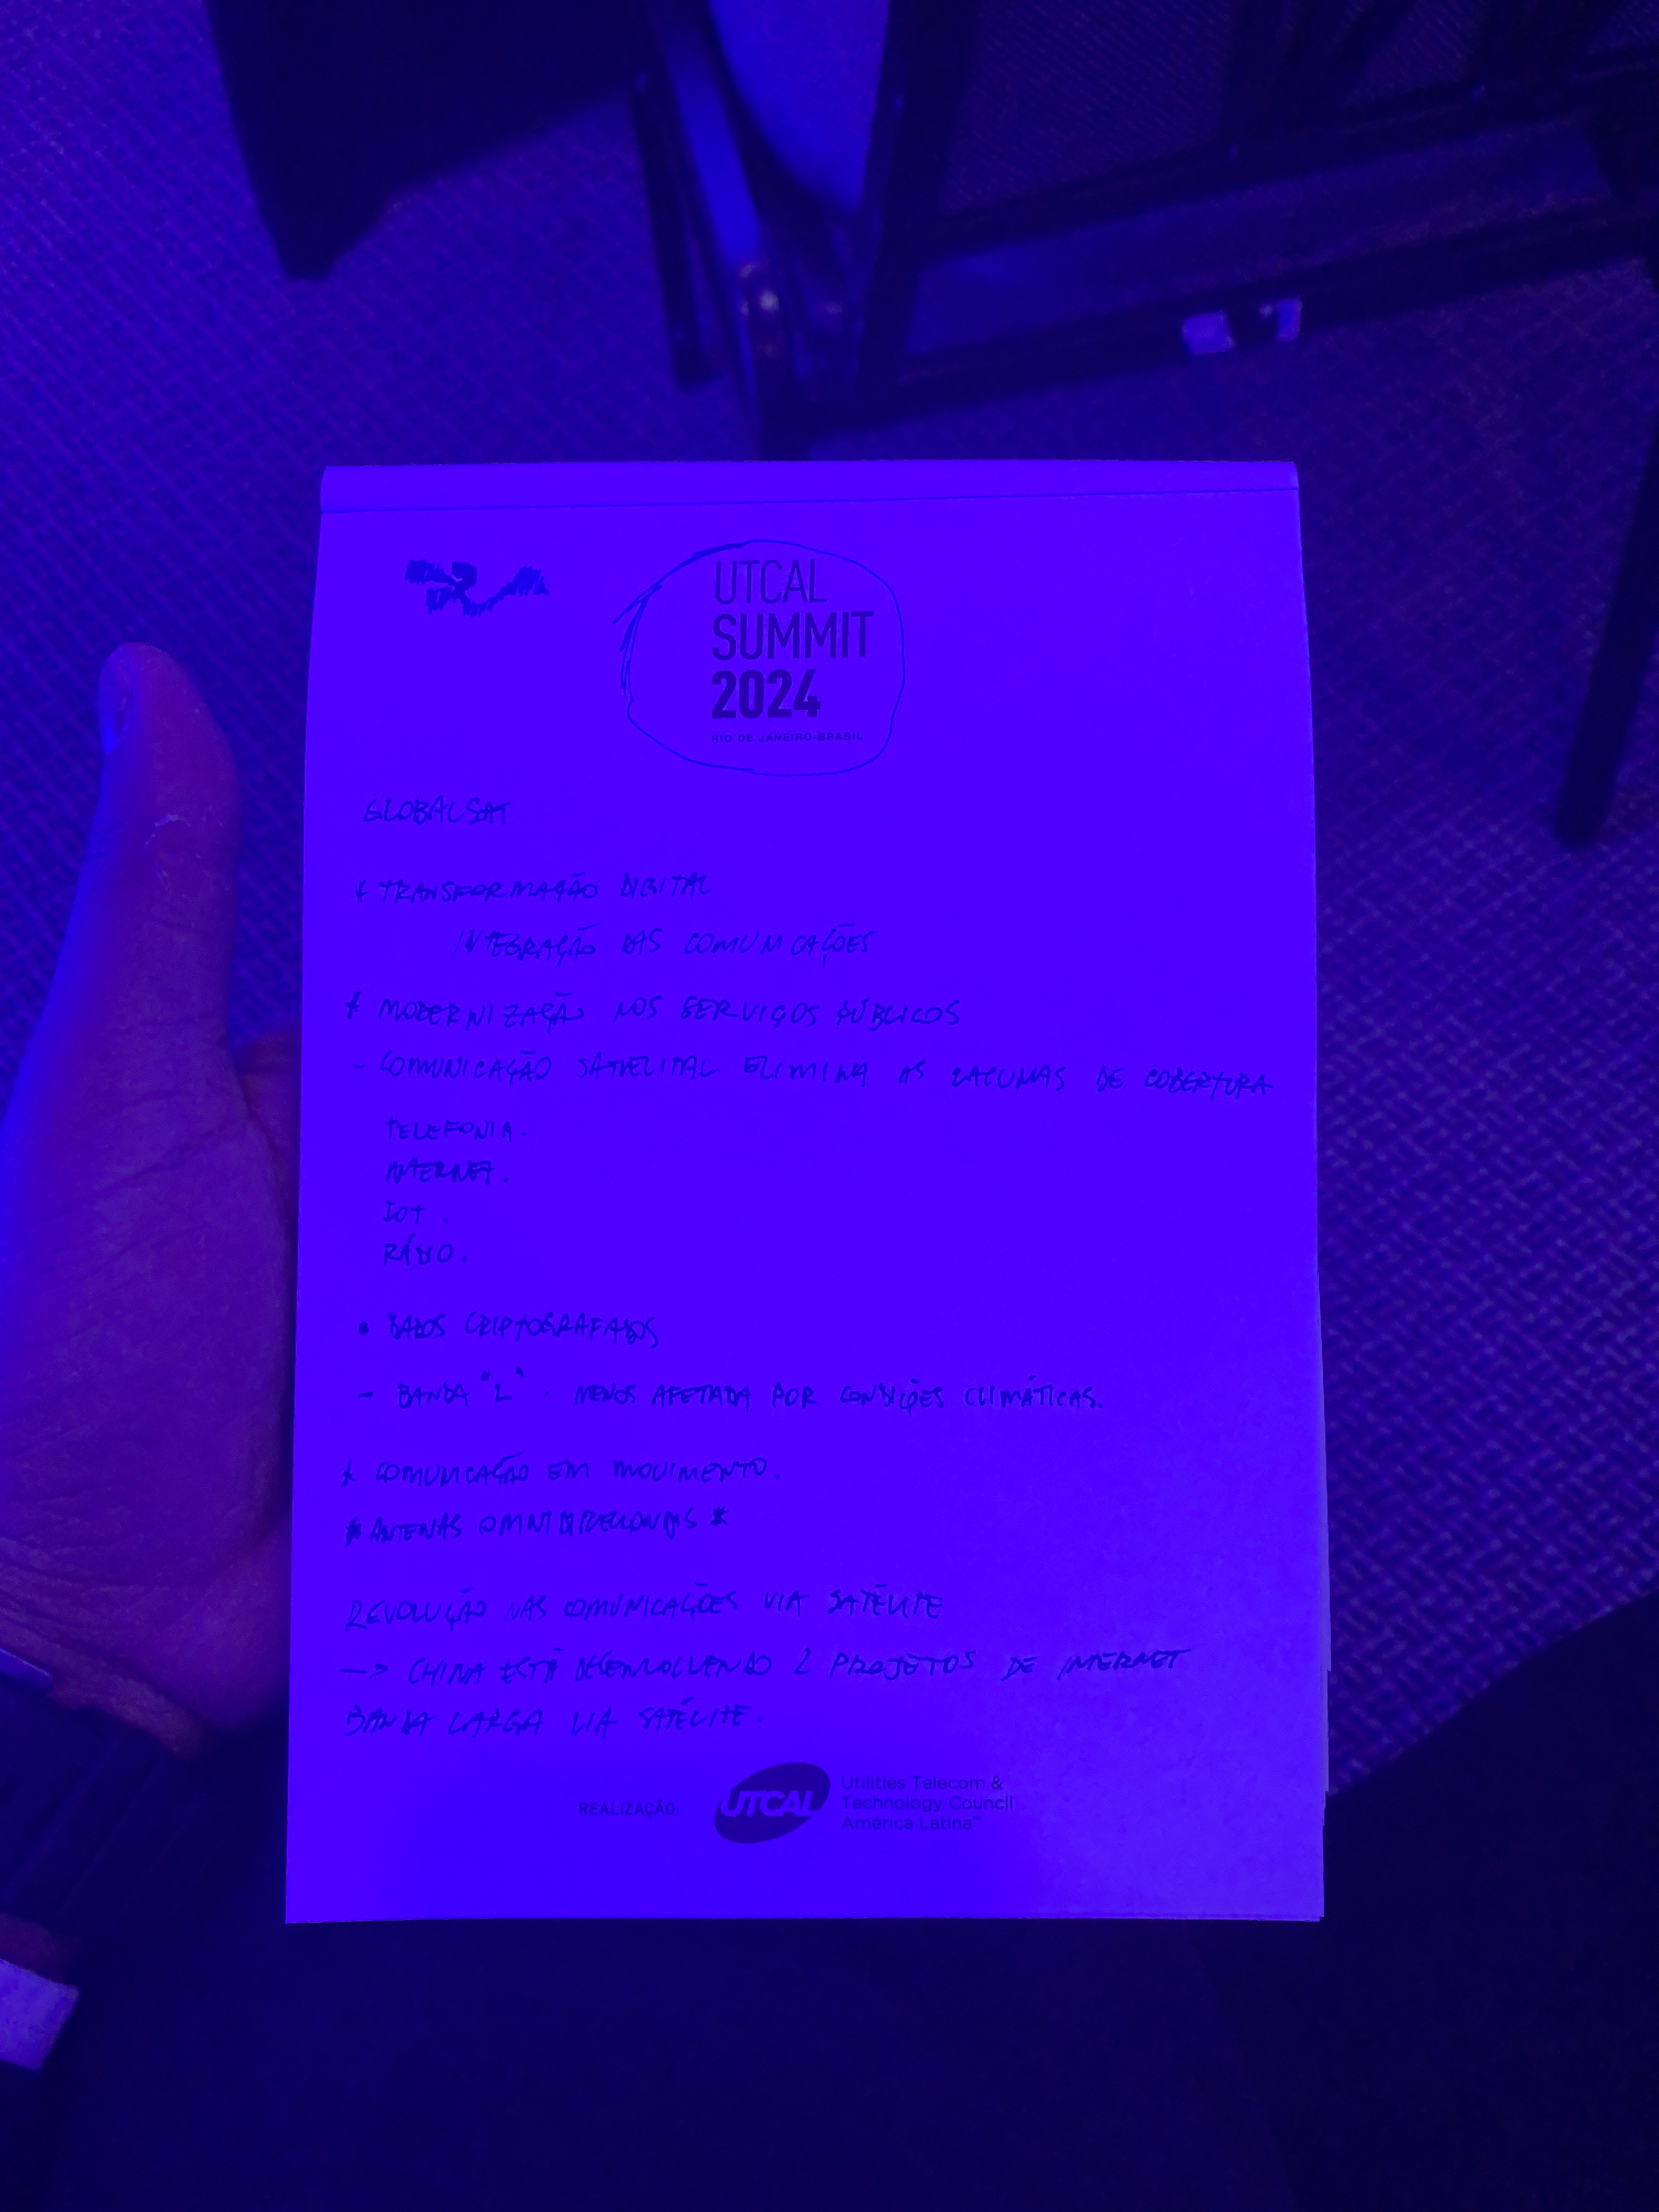 UTCAL
SUMMIT
2024
RIO DE JANEIRO-BRASIL
GLOBALSAT
* TRANSFORMAÇÃO DIGITAL
INTEGRAÇÃO DAS COMUNICAÇÕES
* MODERNIZAÇÃO NOS SERVIÇOS PÚBLICOS
- COMUNICAÇÃO SATELITAL ELIMINA AS LACUNAS DE COBERTURA
TELEFONIA.
INTERNET.
IOT.
RÁDIO.
• DADOS CRIPTOGRAFADOS
- BANDA "L" . MENOS AFETADA POR CONDIÇÕES CLIMÁTICAS.
* COMUNICAÇÃO EM MOVIMENTO.
* ANTENAS *
REVOLUÇÃO NAS COMUNICAÇÕES VIA SATÉLITE
--> CHINA ESTÁ DESENVOLVENDO 2 PROJETOS DE INTERNET
BANDA LARGA VIA SATÉLITE.
REALIZAÇÃO:
UTCAL
Utilities Telecom &
Technology Council
América Latina™